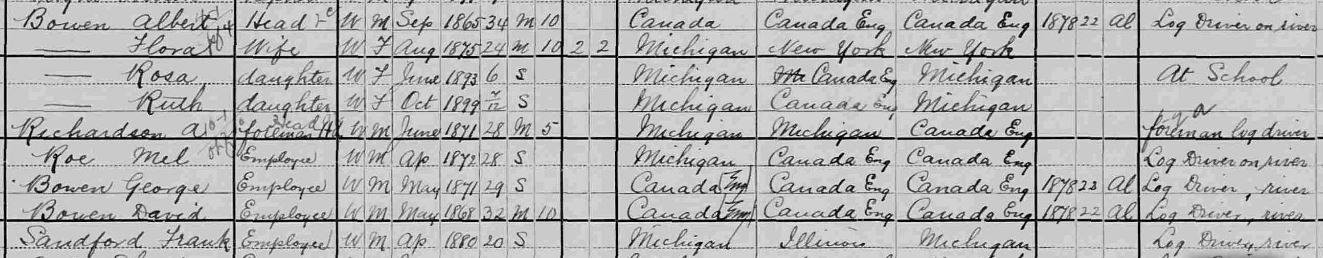 Bowen Albert Head W M Sep 1865 34 M 10 Canada Canada Eng Canada Eng 1878 22 Al Log Driver on river
— Flora Wife W F Aug 1875 24 M 10 2 2 Michigan New York New York
— Rosa daughter W F June 1893 6 S Michigan Canada Eng Michigan At School
— Ruth daughter W F Oct 1899 7/12 S Michigan Canada Eng Michigan
Richardson A foreman Head W M June 1871 28 M 5 Michigan Michigan Canada Eng foreman log driver
Roe Mel Employee W M Ap 1872 28 S Michigan Canada Eng Canada Eng Log Driver on river
Bowen George Employee W M May 1871 29 S Canada Eng Canada Eng Canada Eng 1878 22 Al Log Driver, river
Bowen David Employee W M May 1868 32 M 10 Canada Eng Canada Eng Canada Eng 1878 22 Al Log Driver, river
Sandford Frank Employee W M Ap 1880 20 S Michigan Illinois Michigan Log Driver, river